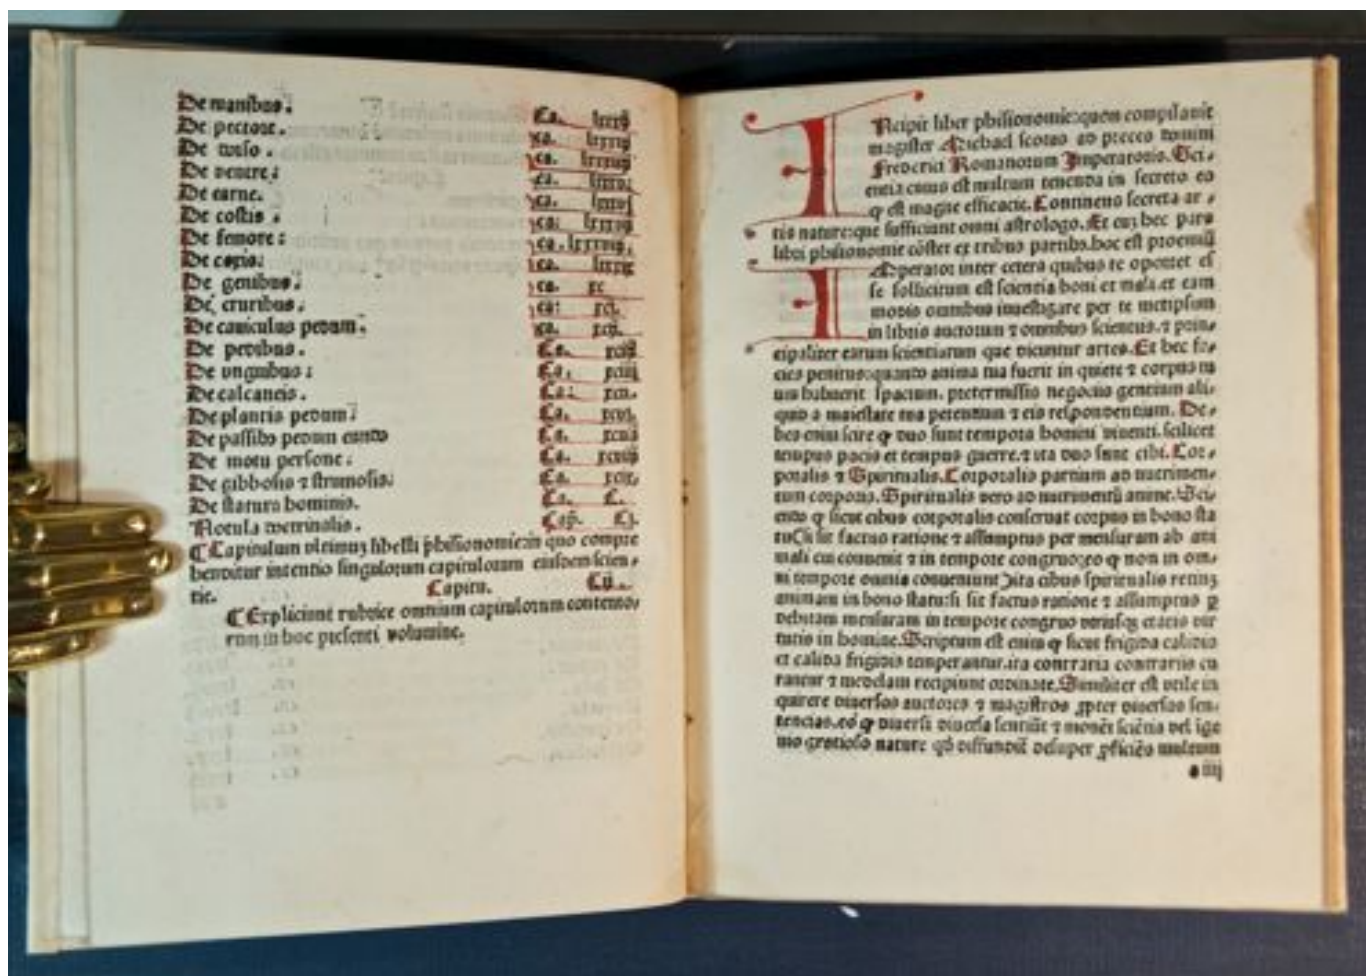 De manibus.
Ca. lxxxij
De pectore.
ca. lxxxiij
De dorso.
ca. lxxxiiij
De ventre:
ca. lxxxv
De carne.
ca. lxxxvj
De costis.
ca: lxxxvij
De femore:
ca. lxxxviij.
De coxis:
ca. lxxxix
De genibus.
ca. xc
De cruribus.
ca: xcj.
De cauiculus pedum.
ca. xcij.
De pedibus.
Ca. xciij
De vnguibus:
Ca. xciiij
De calcaneis.
Ca: xcv.
De plantis pedum.
Ca. xcvj.
De passibo pedum eundo
Ca. xcvij
De motu persone:
Ca. xcviij
De gibbosis ⁊ strumosis.
Ca. xcix.
De statura hominis.
Ca. C.
Notula doctrinalis.
Cap. Cj.
¶ Capitulum vltimuʒ libelli phisionomie: in quo compre
henditur intentio singulorum capitulorum eiusdem scien-
tie. Capitu. Cij.
¶ Expliciunt rubrice omnium capitulorum contento-
rum in hoc presenti volumine.
INcipit liber phisionomie: quem compilauit
magister Michael scotus ad preces domini
Frederici Romanorum Imperatoris. Sci-
entia cuius est multum tenenda in secreto eo
ꝙ est magne efficacie. Continens secreta ar-
tis nature: que sufficiunt omni astrologo. Et cuʒ hec pars
libri phisionomie cōstet ex tribus partibꝰ. hoc est proemiū
IMperator inter cetera quibus te oportet es
se sollicitum est scientia boni et mali. et eam
modis omnibus inuestigare per te metipsum
in libris auctorum ⁊ omnibus scientiis. ⁊ prin-
cipaliter earum scientiarum que dicuntur artes. Et hec fa-
cies penitus: quanto anima tua fuerit in quiete ⁊ corpus tu
um habuerit spacium. pretermissis negociis gentium ali-
quid a maiestate tua petentium ⁊ eis respondentium. De-
bes enim scire ꝙ duo sunt tempora homini viuenti. scilicet
tempus pacis et tempus guerre. ⁊ ita duo sunt cibi. Cor-
poralis ⁊ Spiritualis. Corporalis partium ad nutrimen-
tum corporis. Spiritualis vero ad nutrimentū anime. Sci-
endo ꝙ sicut cibus corporalis conseruat corpus in bono sta
tu (si sit factus ratione ⁊ assumptus per mensuram ab ani
mali cui conuenit ⁊ in tempore congruo: eo ꝙ non in om-
ni tempore omnia conueniunt) ita cibus spiritualis retinʒ
animam in bono statu: si sit factus ratione ⁊ assumptus ꝑ
debitam mensuram in tempore congruo etatis vir
tutis in homine. Scriptum est enim ꝙ sicut frigida calidis
et calida frigidis temperantur. ita contraria contrariis cu
rantur ⁊ medelam recipiunt ordinate. Similiter est vtile in
quirere diuersos auctores ⁊ magistros ꝓpter diuersas sen-
tencias. eo ꝙ diuersi diuersa sentiūt ⁊ monēt sciētia vel ige
nio gratioso nature desuper ꝓficiēs multum
a iiij